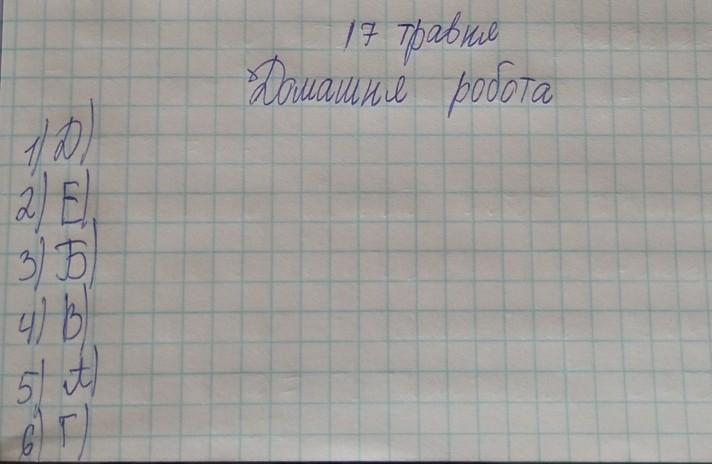 17 травня
Домашня робота
1) Д)
2) Е)
3) Б)
4) В)
5) А)
6) Г)